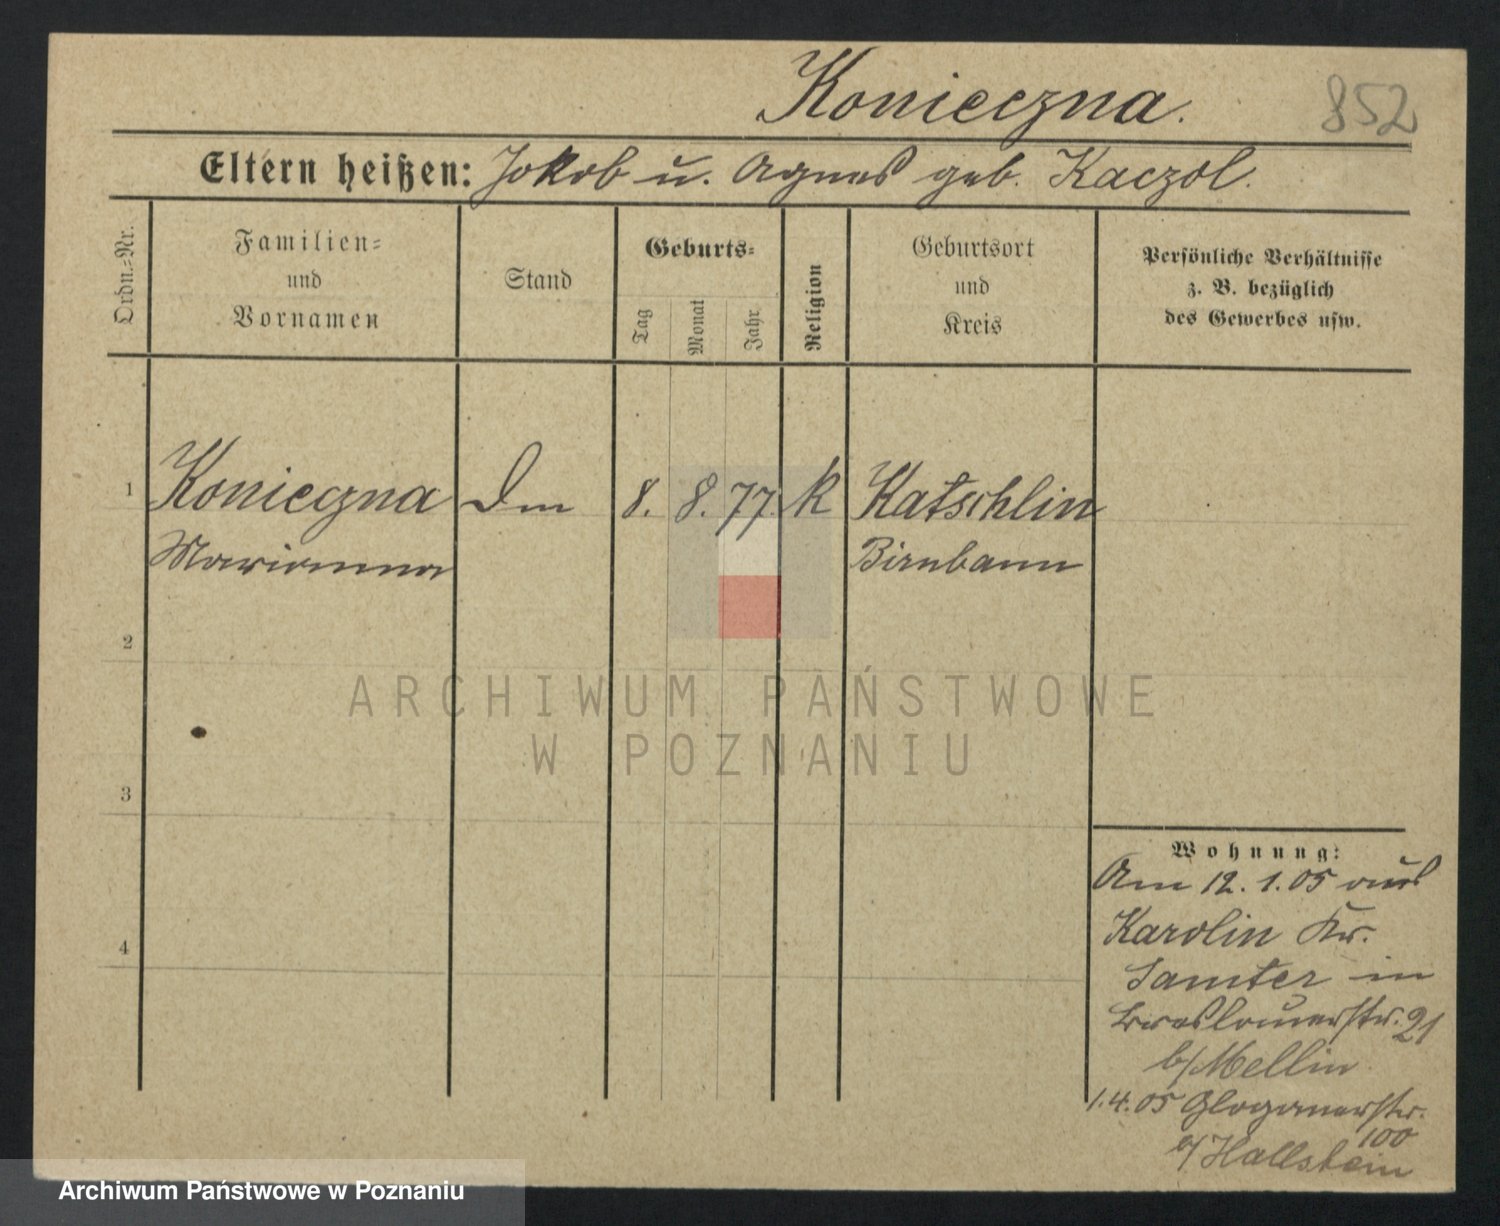 Konieczna.
852
Eltern heißen: Jakob u. Agnes geb. Kaczol.
Ordn.-Nr.
Familien-
und
Vornamen
Stand
Geburts-
Tag
Monat
Jahr
Religion
Geburtsort
und
Kreis
Persönliche Verhältnisse
z. B. bezüglich
des Gewerbes usw.
1 Konieczna Dm 8. 8. 77. k Katschlin
Marianna Birnbaum
2
ARCHIWUM PAŃSTWOWE
W POZNANIU
3
4
Wohnung:
Am 12.1.05 aus
Karolin Kr.
Samter in
Breslauerstr. 21
b/Mellin
1.4.05 Glogauerstr.
100
b/Hallstein
Archiwum Państwowe w Poznaniu